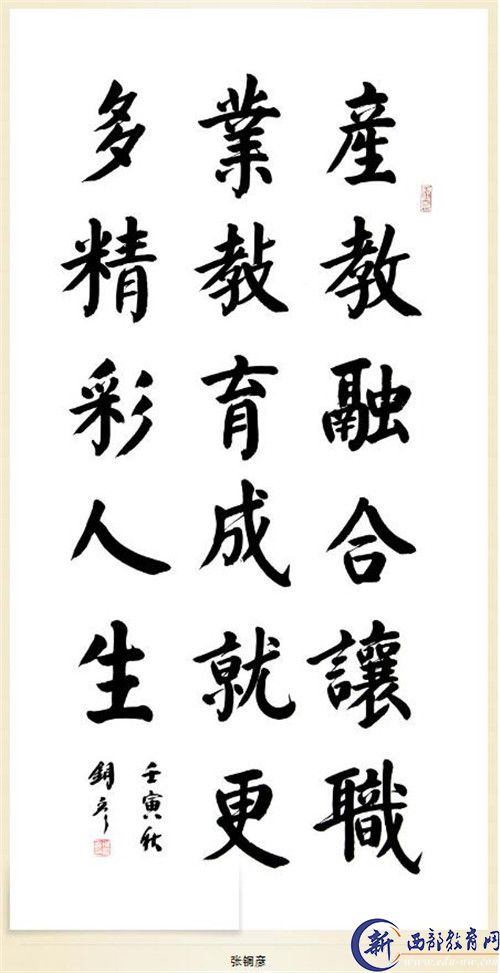 産教融合讓職
業教育成就更
多精彩人生
壬寅秋
鐧彦
张锎彦
新 西部教育网
www.edu-nw.com